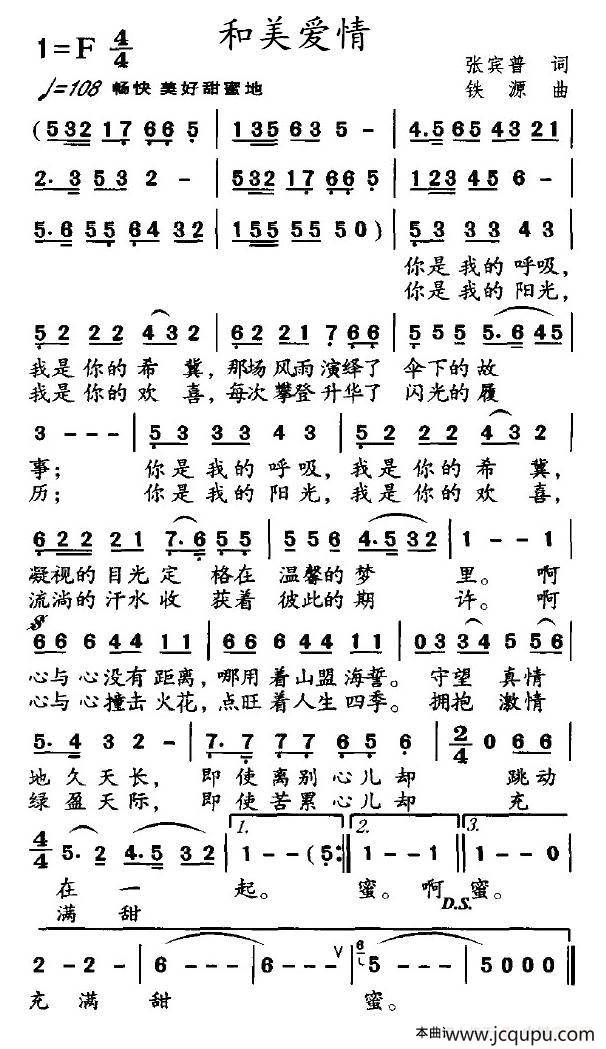 和美爱情
1=F 4/4
张宾普 词
♩=108 畅快 美好甜蜜地
铁源 曲
(532 17 66 5 | 135 63 5 - | 4.5 65 43 21 |
2. 3 53 2 - | 532 17 66 5 | 123 45 6 - |
5. 6 55 64 32 | 155 55 50) | 53 33 43 |
你是我的呼吸,
你是我的阳光,
52 22 432 | 62 21 7 66 | 55 5 5.6 45 |
我是你的希冀,那场风雨演绎了 伞下的故
我是你的欢喜,每次攀登升华了 闪光的履
3 - - - | 53 33 43 | 52 22 432 |
事; 你是我的呼吸,我是你的希冀,
历; 你是我的阳光,我是你的欢喜,
622 21 7.6 55 | 556 4.532 | 1 - - 1 |
凝视的目光定格在 温馨的梦 里。啊
流淌的汗水收获着 彼此的期 许。啊
66 66 44 11 | 66 66 44 11 | 033 4 5 56 |
心与心没有距离,哪用着山盟海誓。守望 真情
心与心撞击火花,点旺着人生四季。拥抱 激情
5. 4 3 2 - | 7. 7 7 7 6 5 6 | 2/4 0 66 |
地久天长, 即使离别心儿却 跳动
绿盈天际, 即使苦累心儿却 充
1. 2. 3.
4/4 5. 2 4.5 32 | 1 - - (5 :| 1 - - 1 | 1 - - 0 |
在一 起。 蜜。啊 蜜。
满甜
D.S.
2 - 2 - | 6 - - - | 6 - - - ∨ | 5 - - - | 5000 ‖
充 满 甜 蜜。
本曲i www.jcqupu.com